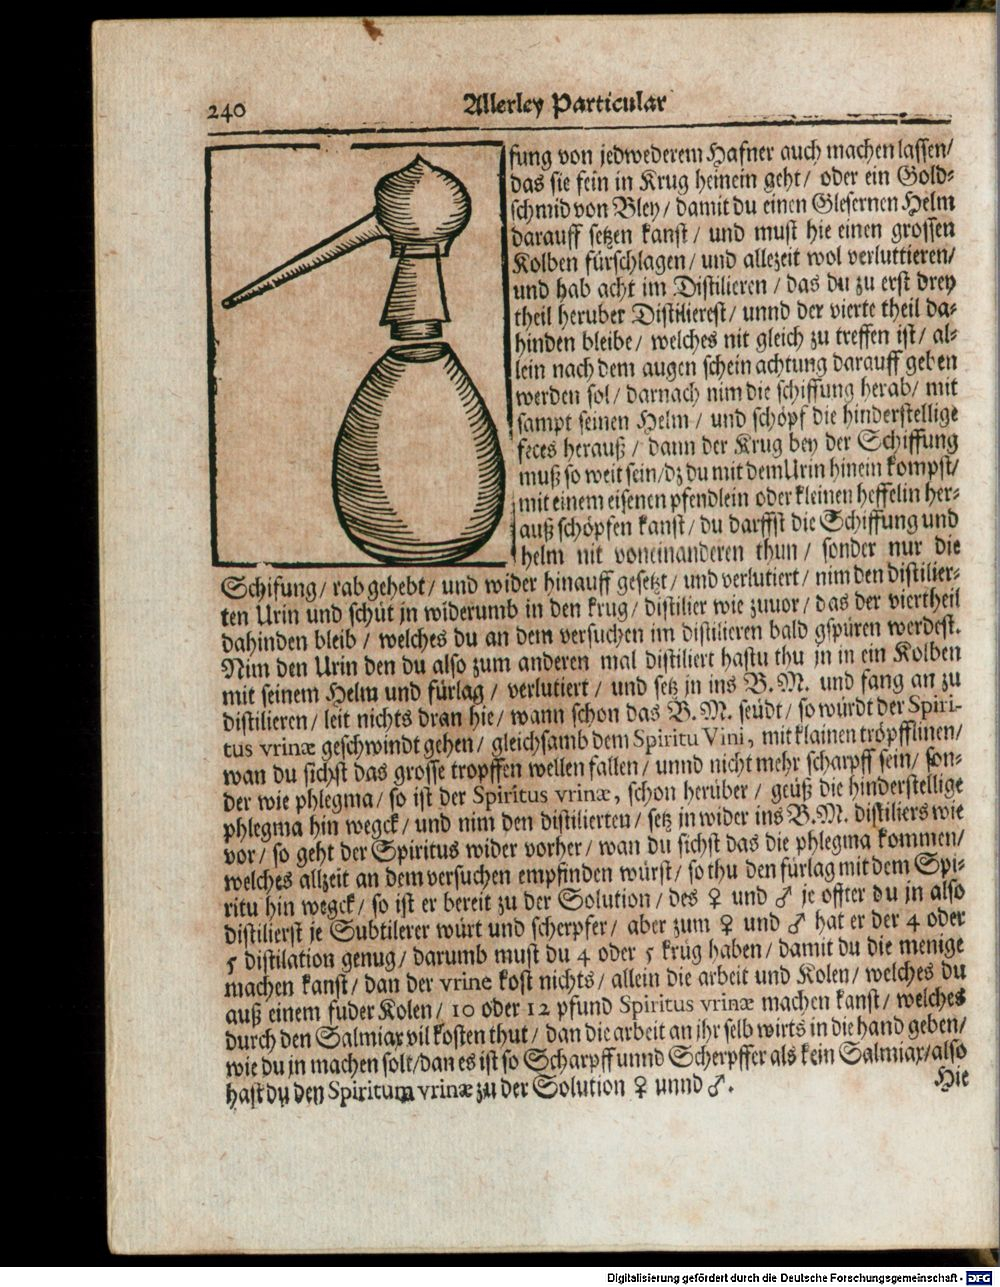 240
Allerley Particular
fung von jedwederem Hafner auch machen lassen/
das sie fein in Krug heinein geht/ oder ein Gold-
schmid von Bley/ damit du einen Glesernen Helm
darauff setzen kanst/ und must hie einen grossen
Kolben fürschlagen/ und allezeit wol verluttieren/
und hab acht im Distilieren/ das du zu erst drey
theil heruber Distilierest/ unnd der vierte theil da-
hinden bleibe/ welches nit gleich zu treffen ist/ al-
lein nach dem augen schein achtung darauff geben
werden sol/ darnach nim die schiffung herab/ mit
sampt seinen Helm/ und schöpf die hinderstellige
feces herauß/ dann der Krug bey der Schiffung
muß so weit sein/ dz du mit dem Urin hinein kompst/
mit einem eisenen pfendlein oder kleinen heffelin her-
auß schöpfen kanst/ du darffst die Schiffung und
helm nit voneinanderen thun/ sonder nur die
Schifung/ rab gehebt/ und wider hinauff gesetzt/ und verlutiert/ nim den distilier-
ten Urin und schüt jn widerumb in den krug/ distilier wie zuuor/ das der viertheil
dahinden bleib/ welches du an dem versuchen im distilieren bald gspüren werdest.
Nim den Urin den du also zum anderen mal distiliert hastu thu jn in ein Kolben
mit seinem Helm und fürlag/ verlutiert/ und setz jn ins B. M. und fang an zu
distilieren/ leit nichts dran hie/ wann schon das B. M. seüdt/ so würdt der Spiri-
tus vrinæ geschwindt gehen/ gleichsamb dem Spiritu Vini, mit klainen tröpfflinen/
wan du sichst das grosse tropffen wellen fallen/ unnd nicht mehr scharpff sein/ son-
der wie phlegma/ so ist der Spiritus vrinæ, schon herüber/ geüß die hinderstellige
phlegma hin wegck/ und nim den distilierten/ setz jn wider ins B. M. distiliers wie
vor/ so geht der Spiritus wider vorher/ wan du sichst das die phlegma kommen/
welches allzeit an dem versuchen empfinden würst/ so thu den fürlag mit dem Spi-
ritu hin wegck/ so ist er bereit zu der Solution/ des ♀ und ♂ je offter du jn also
distilierst je Subtilerer würt und scherpfer/ aber zum ♀ und ♂ hat er der 4 oder
5 distilation genug/ darumb must du 4 oder 5 krüg haben/ damit du die menige
machen kanst/ dan der vrine kost nichts/ allein die arbeit und Kolen/ welches du
auß einem fuder Kolen/ 10 oder 12 pfund Spiritus vrinæ machen kanst/ welches
durch den Salmiax vil kosten thut/ dan die arbeit an ihr selb wirts in die hand geben/
wie du jn machen solt/ dan es ist so Scharpff unnd Scherpffer als kein Salmiax/ also
hast du den Spiritum vrinæ zu der Solution ♀ unnd ♂.
Hie
Digitalisierung gefördert durch die Deutsche Forschungsgemeinschaft - DFG